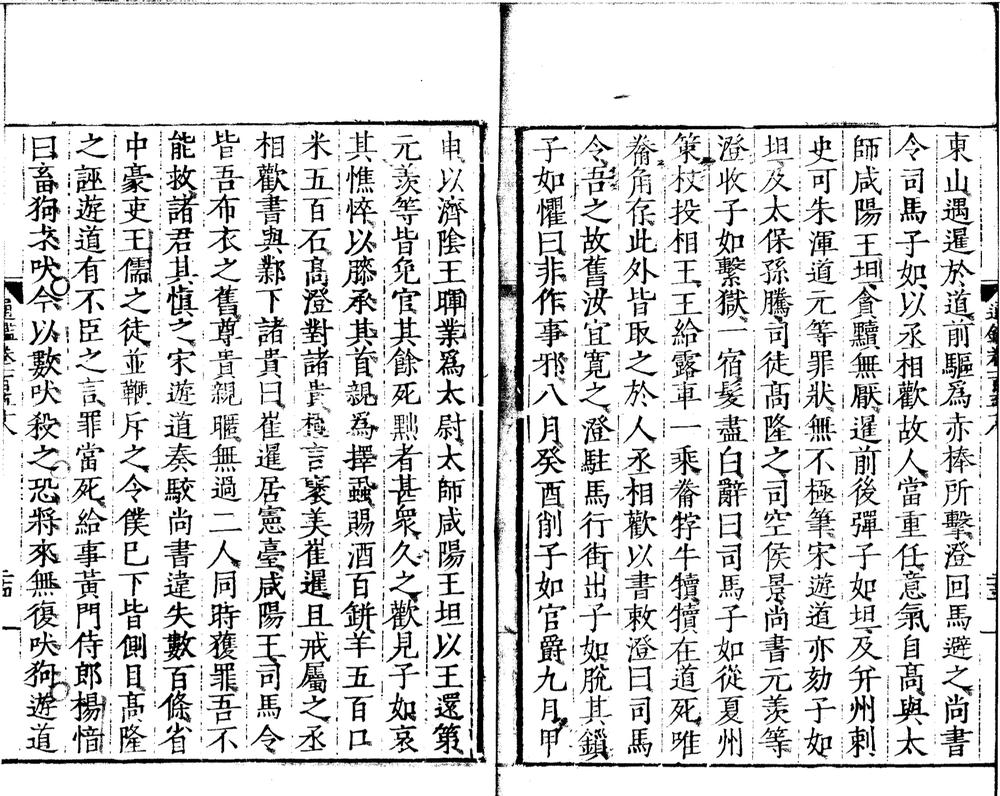 東山遇暹於道前驅爲赤棒所擊澄回馬避之尚書
令司馬子如以丞相歡故人當重任意氣自高與太
師咸陽王坦貪黷無厭暹前後彈子如坦及并州刺
史可朱渾道元等罪狀無不極筆宋遊道亦劾子如
坦及太保孫騰司徒高隆之司空侯景尚書元羨等
澄收子如繫獄一宿髮盡白辭曰司馬子如從夏州
策杖投相王王給露車一乘觠牸牛犢犢在道死唯
觠角存此外皆取之於人丞相歡以書敕澄曰司馬
令吾之故舊汝宜寛之澄駐馬行街出子如脫其鎖
子如懼曰非作事邪八月癸酉削子如官爵九月甲
申以濟陰王暉業爲太尉太師咸陽王坦以王還第
元羨等皆免官其餘死黜者甚衆久之歡見子如哀
其憔悴以膝承其首親爲擇蝨賜酒百缾羊五百口
米五百石高澄對諸貴極言襃美崔暹且戒屬之丞
相歡書與鄴下諸貴曰崔暹居憲臺咸陽王司馬令
皆吾布衣之舊尊貴親暱無過二人同時獲罪吾不
能救諸君其慎之宋遊道奏駮尚書違失數百條省
中豪吏王儒之徒並鞭斥之令僕已下皆側目高隆
之誣遊道有不臣之言罪當死給事黃門侍郎楊愔
曰畜狗求吠今以數吠殺之恐將來無復吠狗遊道